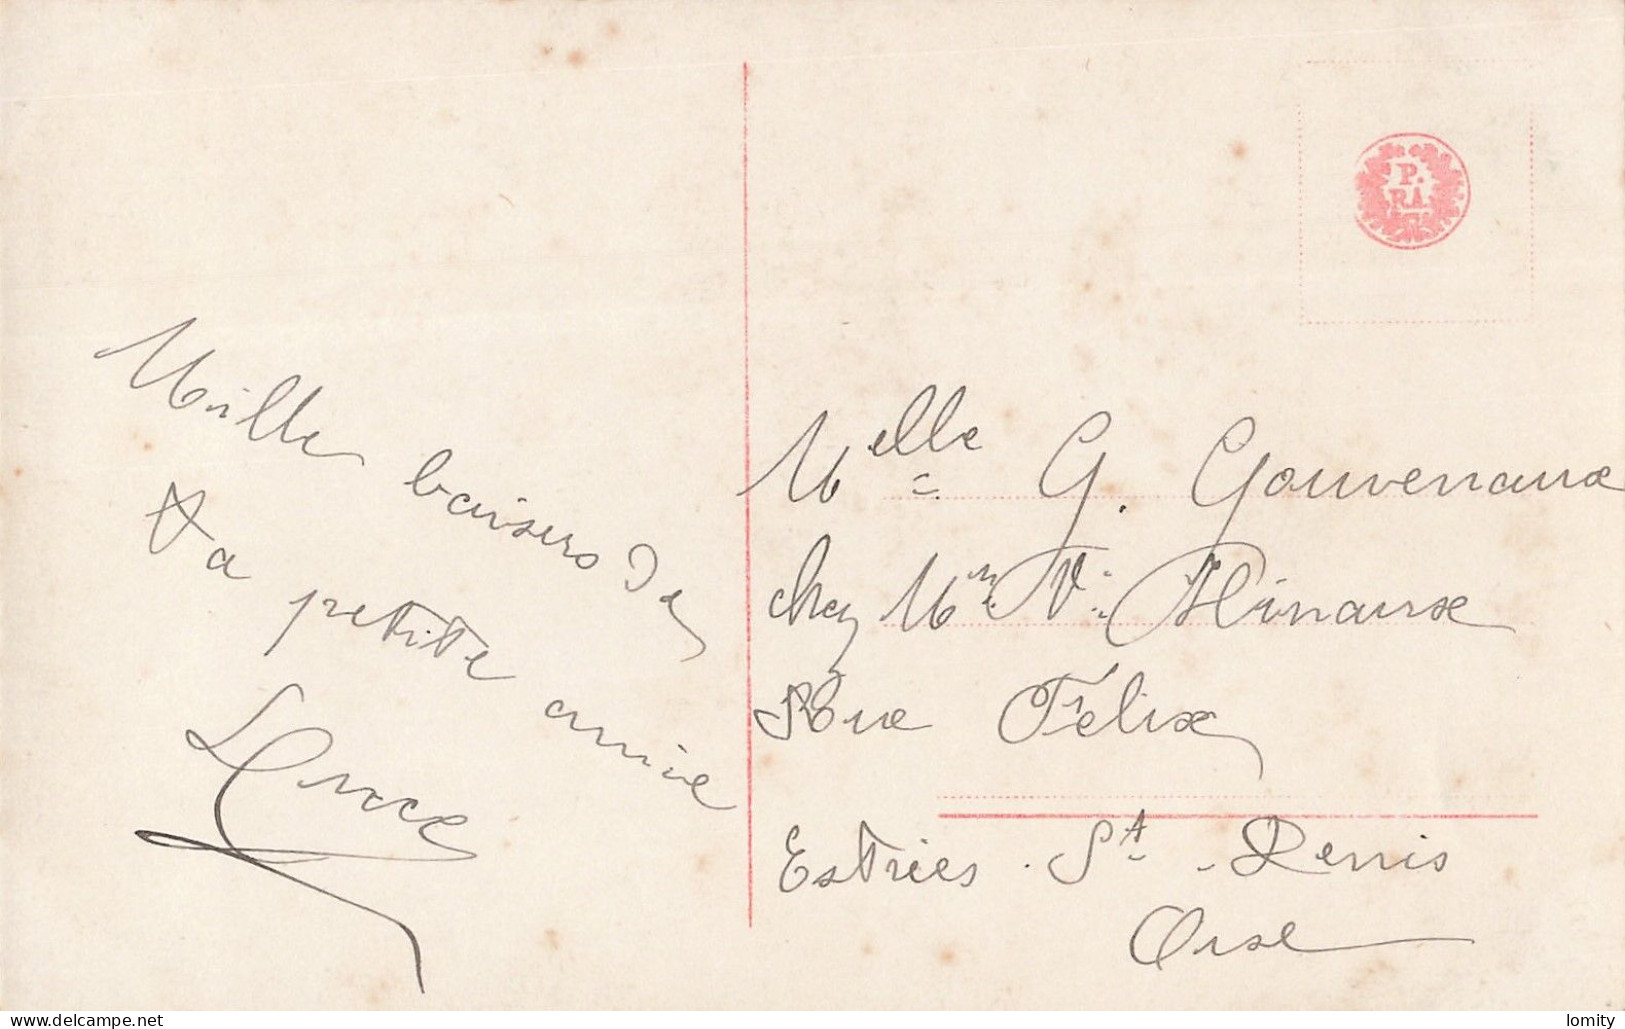 Mille baisers de
ta petite amie
Luce
P.
RA.
Melle G. Gouvenaux
chez Mr V. Minaux
Rue Félix
Estries St - Denis
Oise
www.delcampe.net
lomity